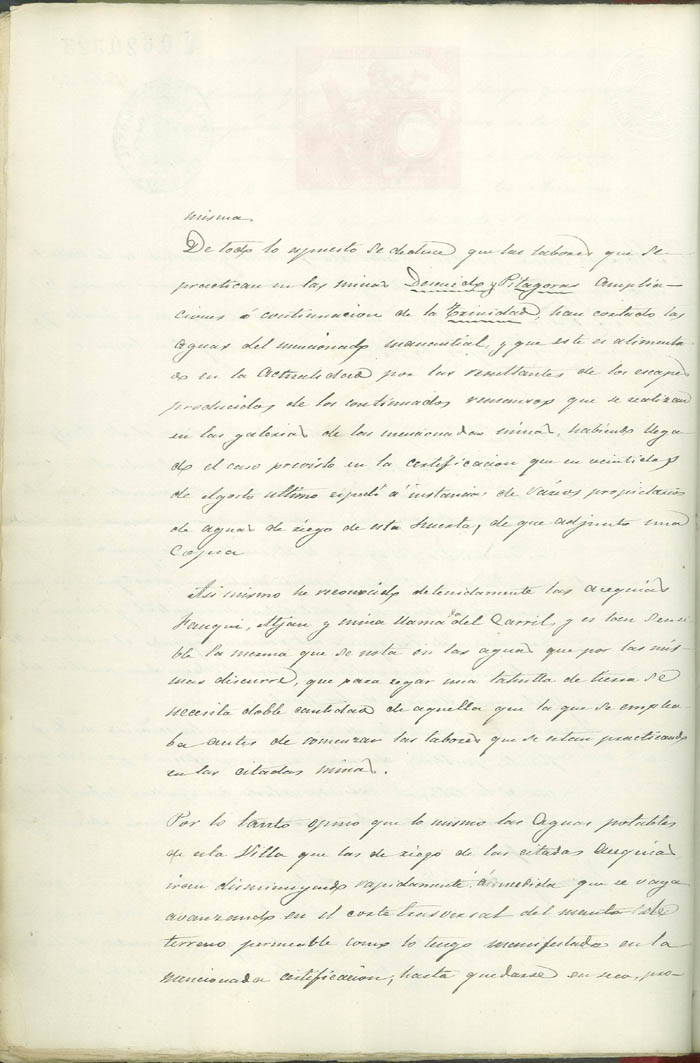 misma.
De todo lo espuesto se deduce que las labores que se
practican en las minas Descuido y Pitagoras Amplia-
ciones ó continuacion de la Trinidad, han cortado las
aguas del mencionado manantial, y que este se alimenta-
do en la actualidad por las resultantes de los escapes
producidos de los continuados que se realizan
en las galerias de las mencionadas minas, habiendo llega-
do el caso previsto en la certificacion que en veintidos
de Agosto ultimo espedí á instancias de varios propietarios
de aguas de riego de esta huerta, de que adjunto una
Copia
Asi mismo he reconocido detenidamente las acequias
y mina llamada del Carril, y es tan sensi-
ble la merma que se nota en las aguas que por las mis-
mas discurre, que para regar una tahulla de tierra se
necesita doble cantidad de aquella que la que se emplea-
ba antes de comenzar las labores que se estan practicando
en las citadas minas.
Por lo tanto opino que lo mismo las Aguas potables
de esta Villa que las de riego de las citadas acequias
iran disminuyendo rapidamente á medida que se vaya
avanzando en el corte trasversal del manto de
terreno permeable como lo tengo manifestado en la
mencionada certificacion; hasta quedarse en seco, pro-